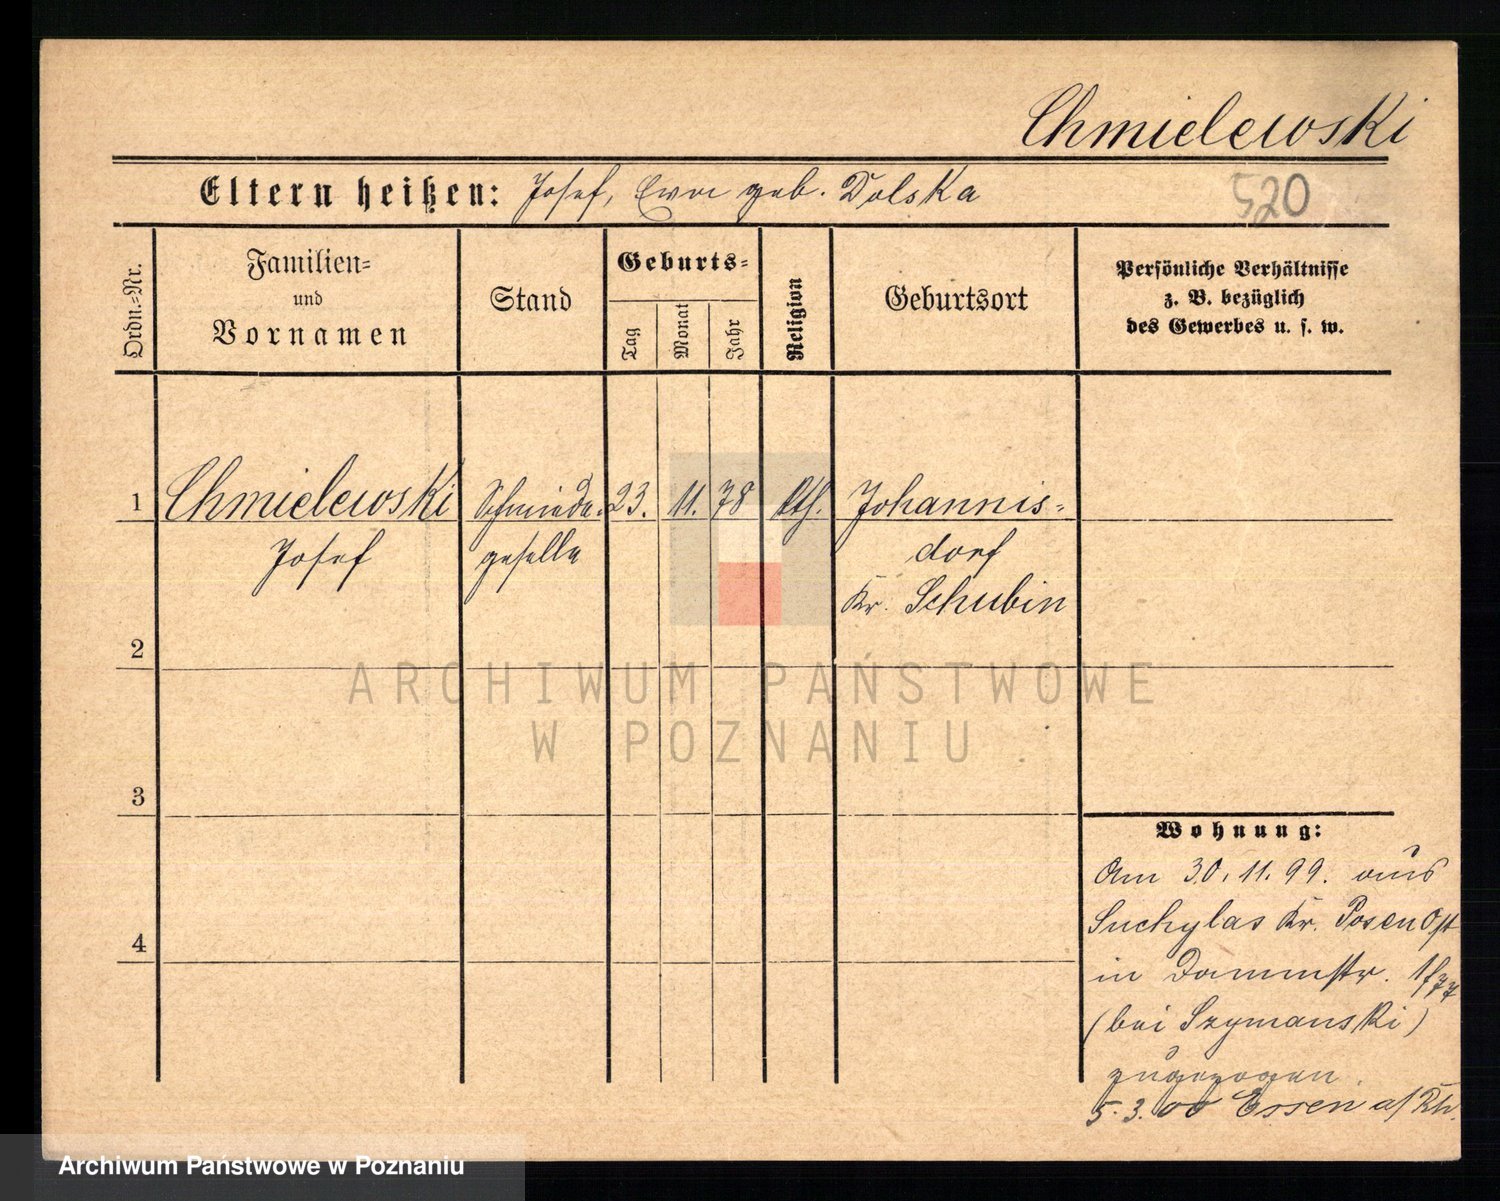 Chmielewski
Eltern heißen: Josef, Ewa geb. Dolska
520
Ordn.=Nr.
Familien=
und
Vornamen
Stand
Geburts=
Tag
Monat
Jahr
Religion
Geburtsort
Persönliche Verhältnisse
z. B. bezüglich
des Gewerbes u. s. w.
1 Chmielewski Schmiede- 23. 11. 78 kth. Johannis=
Josef geselle dorf
Kr. Schubin
2
ARCHIWUM PAŃSTWOWE
W POZNANIU
3
Wohnung:
Am 30.11.99. aus
Suchylas Kr. Posen Ost
in Dammstr.
(bei Szymanski)
zugezogen.
4
5.3.00 Essen a/Rh.
Archiwum Państwowe w Poznaniu